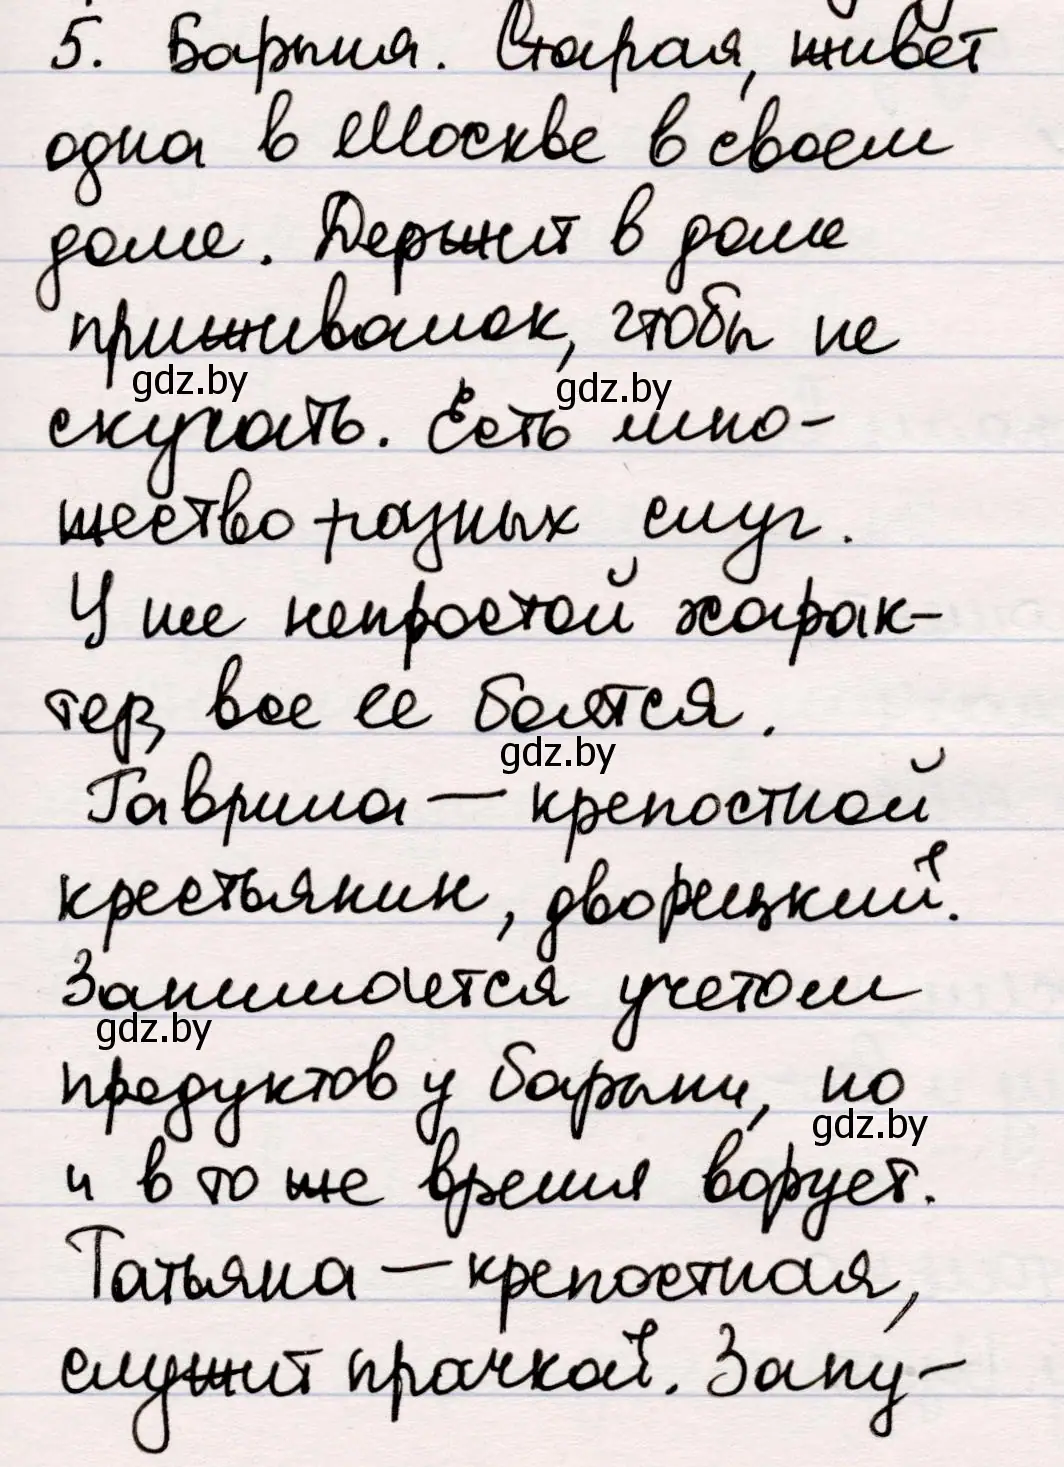 5. Барыня. Старая, живет
одна в Москве в своем
доме. Держит в доме
приживалок, чтобы не
gdz.by
gdz.by
скучать. Есть мно-
жество разных слуг.
У нее непростой харак-
тер, все ее боятся.
gdz.by
Гаврила — крепостной
крестьянин, дворецкий.
Занимается учетом
gdz.by
продуктов у барыни, но
gdz.by
и в то же время ворует.
Татьяна — крепостная,
служит прачкой. Запу-